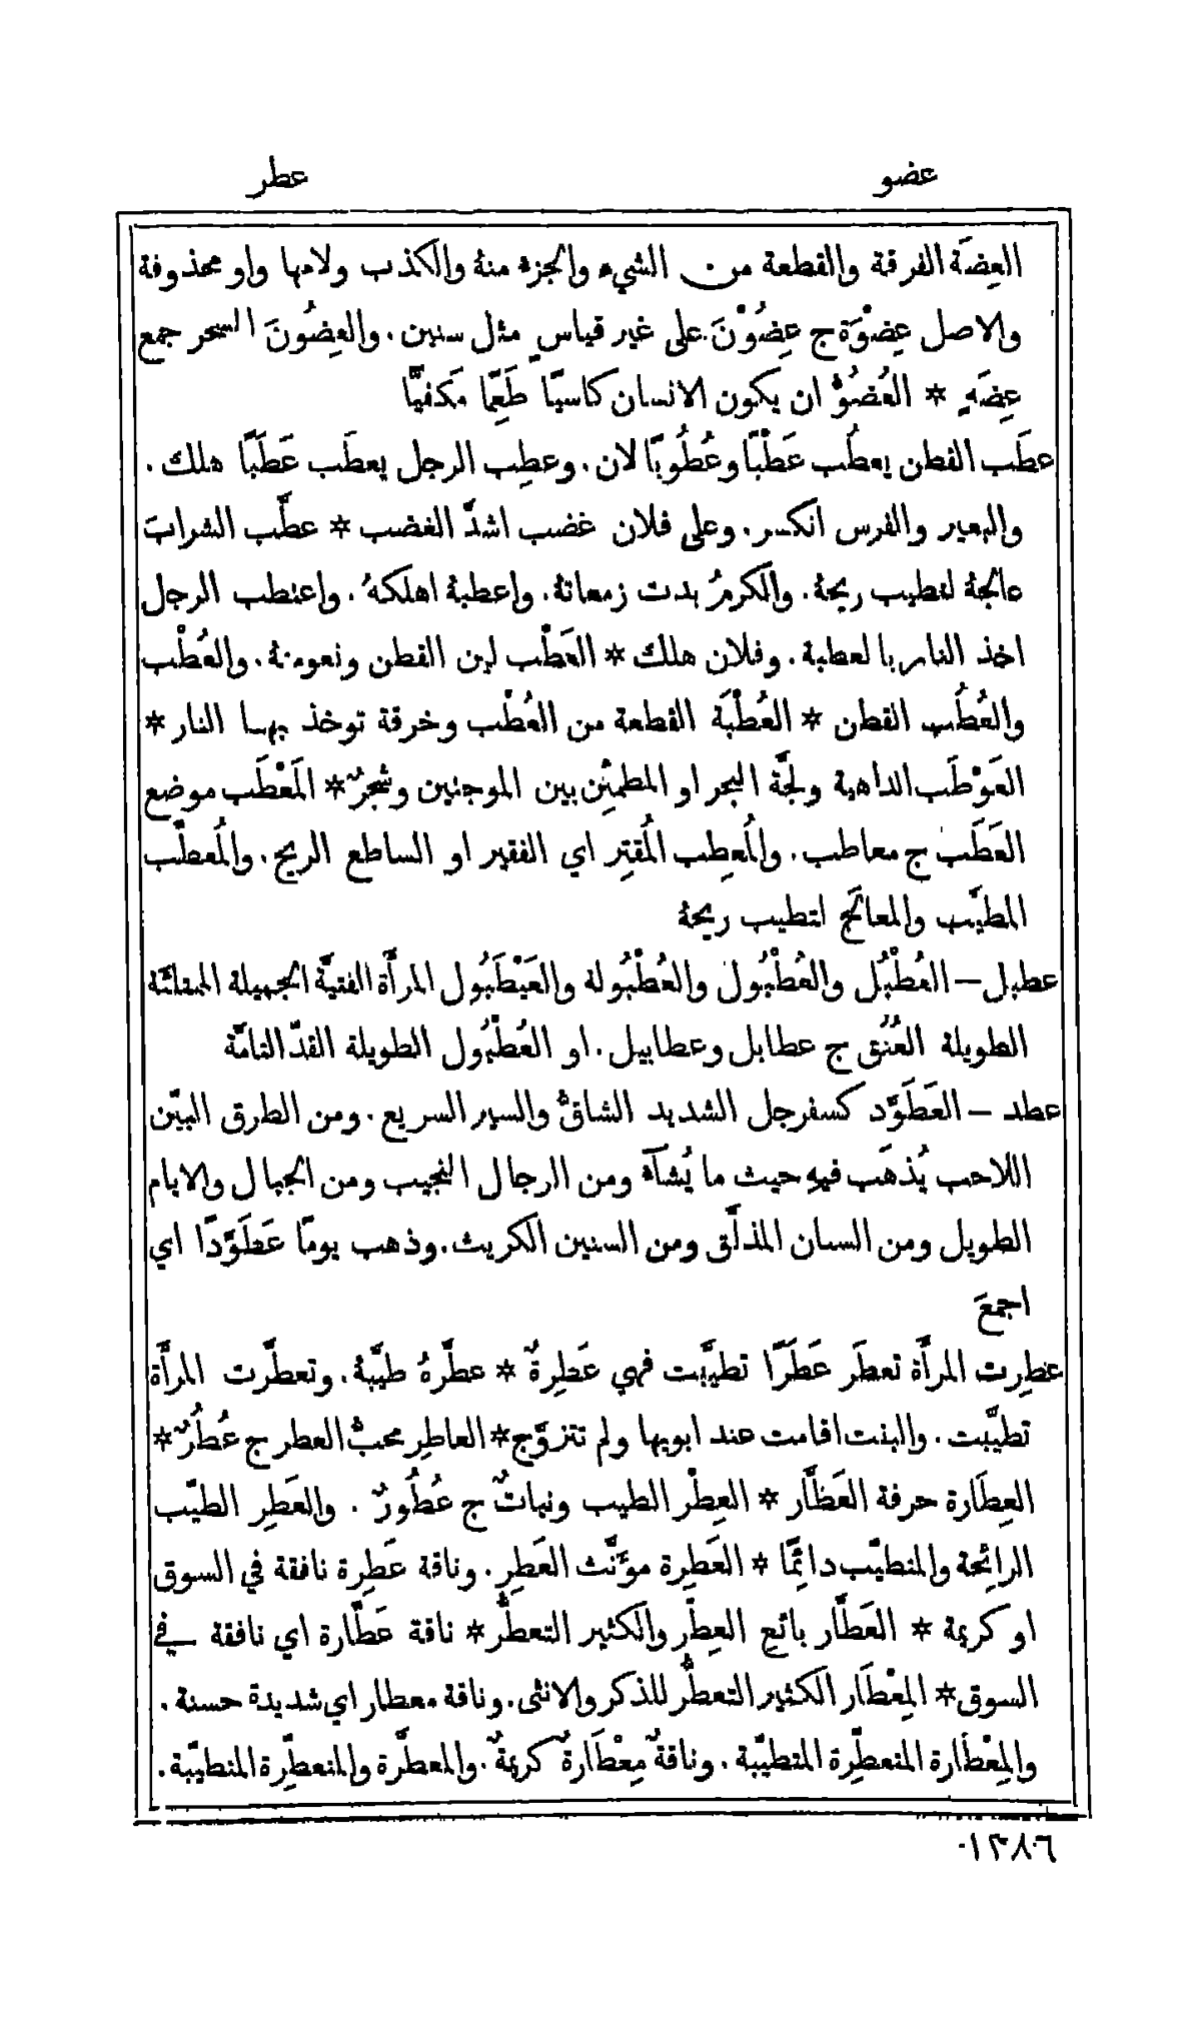 عضو
عطر
العِضَة الفرقة والقطعة من الشيء والجزء منهُ والكذب ولامها واو محذوفة
والاصل عِضْوَة ج عِضُوْنَ على غير قياسٍ مثل سنين. والعِضُونَ السحر جمع
عِضَهٍ * العُضُوُّ ان يكون الانسان كاسيًا طَعِمًا مَكفيًّا
عطَب القطن يعطُب عَطْبًا وعُطُوبًا لان. وعطِب الرجل يعطَب عَطَبًا هلك.
والبعير والفرس انكسر. وعلى فلان غضب اشدّ الغضب * عطَّب الشرابَ
عالجهُ لتطيب ريحهُ. والكرمُ بدت زمعاتهُ. واعطبهُ اهلكهُ. واعتطب الرجل
اخذ النار بالعطبة. وفلان هلك * العَطْب لين القطن ونعومتهُ. والعُطْب
والعُطُب القطن * العُطْبَة القطعة من العُطْب وخرقة توخذ بها النار *
العَوْطَب الداهية ولجَّة البحر او المطمئِن بين الموجتين وشجرٌ * المَعْطَب موضع
العَطَب ج معاطب. والمُعطِب المُقتِر اي الفقير او الساطع الريح. والمُعطَّب
المطيَّب والمعالَج لتطيب ريحهُ
عطبل – العُطْبُل والعُطْبُول والعُطْبُولة والعَيْطَبُول المرأَة الفتيَّة الجميلة الممتلئَة
الطويلة العُنُق ج عطابل وعطابيل. او العُطْبُول الطويلة القدّ التامَّة
عطد – العَطَوَّد كسفرجل الشديد الشاقّ والسير السريع. ومن الطرق البيّن
اللاحب يُذهَب فيهِ حيث ما يُشآءُ ومن الرجال النجيب ومن الجبال والايام
الطويل ومن السنان المذلَّق ومن السنين الكريث. وذهب يومًا عَطَوَّدًا اي
اجمعَ
عطِرت المرأَة تعطَر عَطَرًا تطيَّبت فهي عَطِرةٌ * عطَّرهُ طيَّبهُ. وتعطَّرت المرأَة
تطيَّبت. والبنت اقامت عند ابويها ولم تتزوَّج * العاطِر محبُّ العطر ج عُطُرٌ *
العِطَارة حرفة العَطَّار * العِطْر الطيب ونباتٌ ج عُطُورٌ. والعَطِر الطيّب
الرائِحة والمتطيّب دائِمًا * العَطِرة مؤَنَّث العَطِر. وناقة عَطِرة نافقة في السوق
او كريمة * العَطَّار بائع العِطْر والكثير التعطُّر * ناقة عَطَّارة اي نافقة في
السوق * المِعْطَار الكثير التعطُّر للذكر والانثى. وناقة معطار اي شديدة حسنة.
والمِعْطَارة المتعطِّرة المتطيّبة. وناقةٌ مِعْطَارةٌ كريمةٌ. والمعطَّرة والمتعطِّرة المتطيّبة.
١٣٨٦